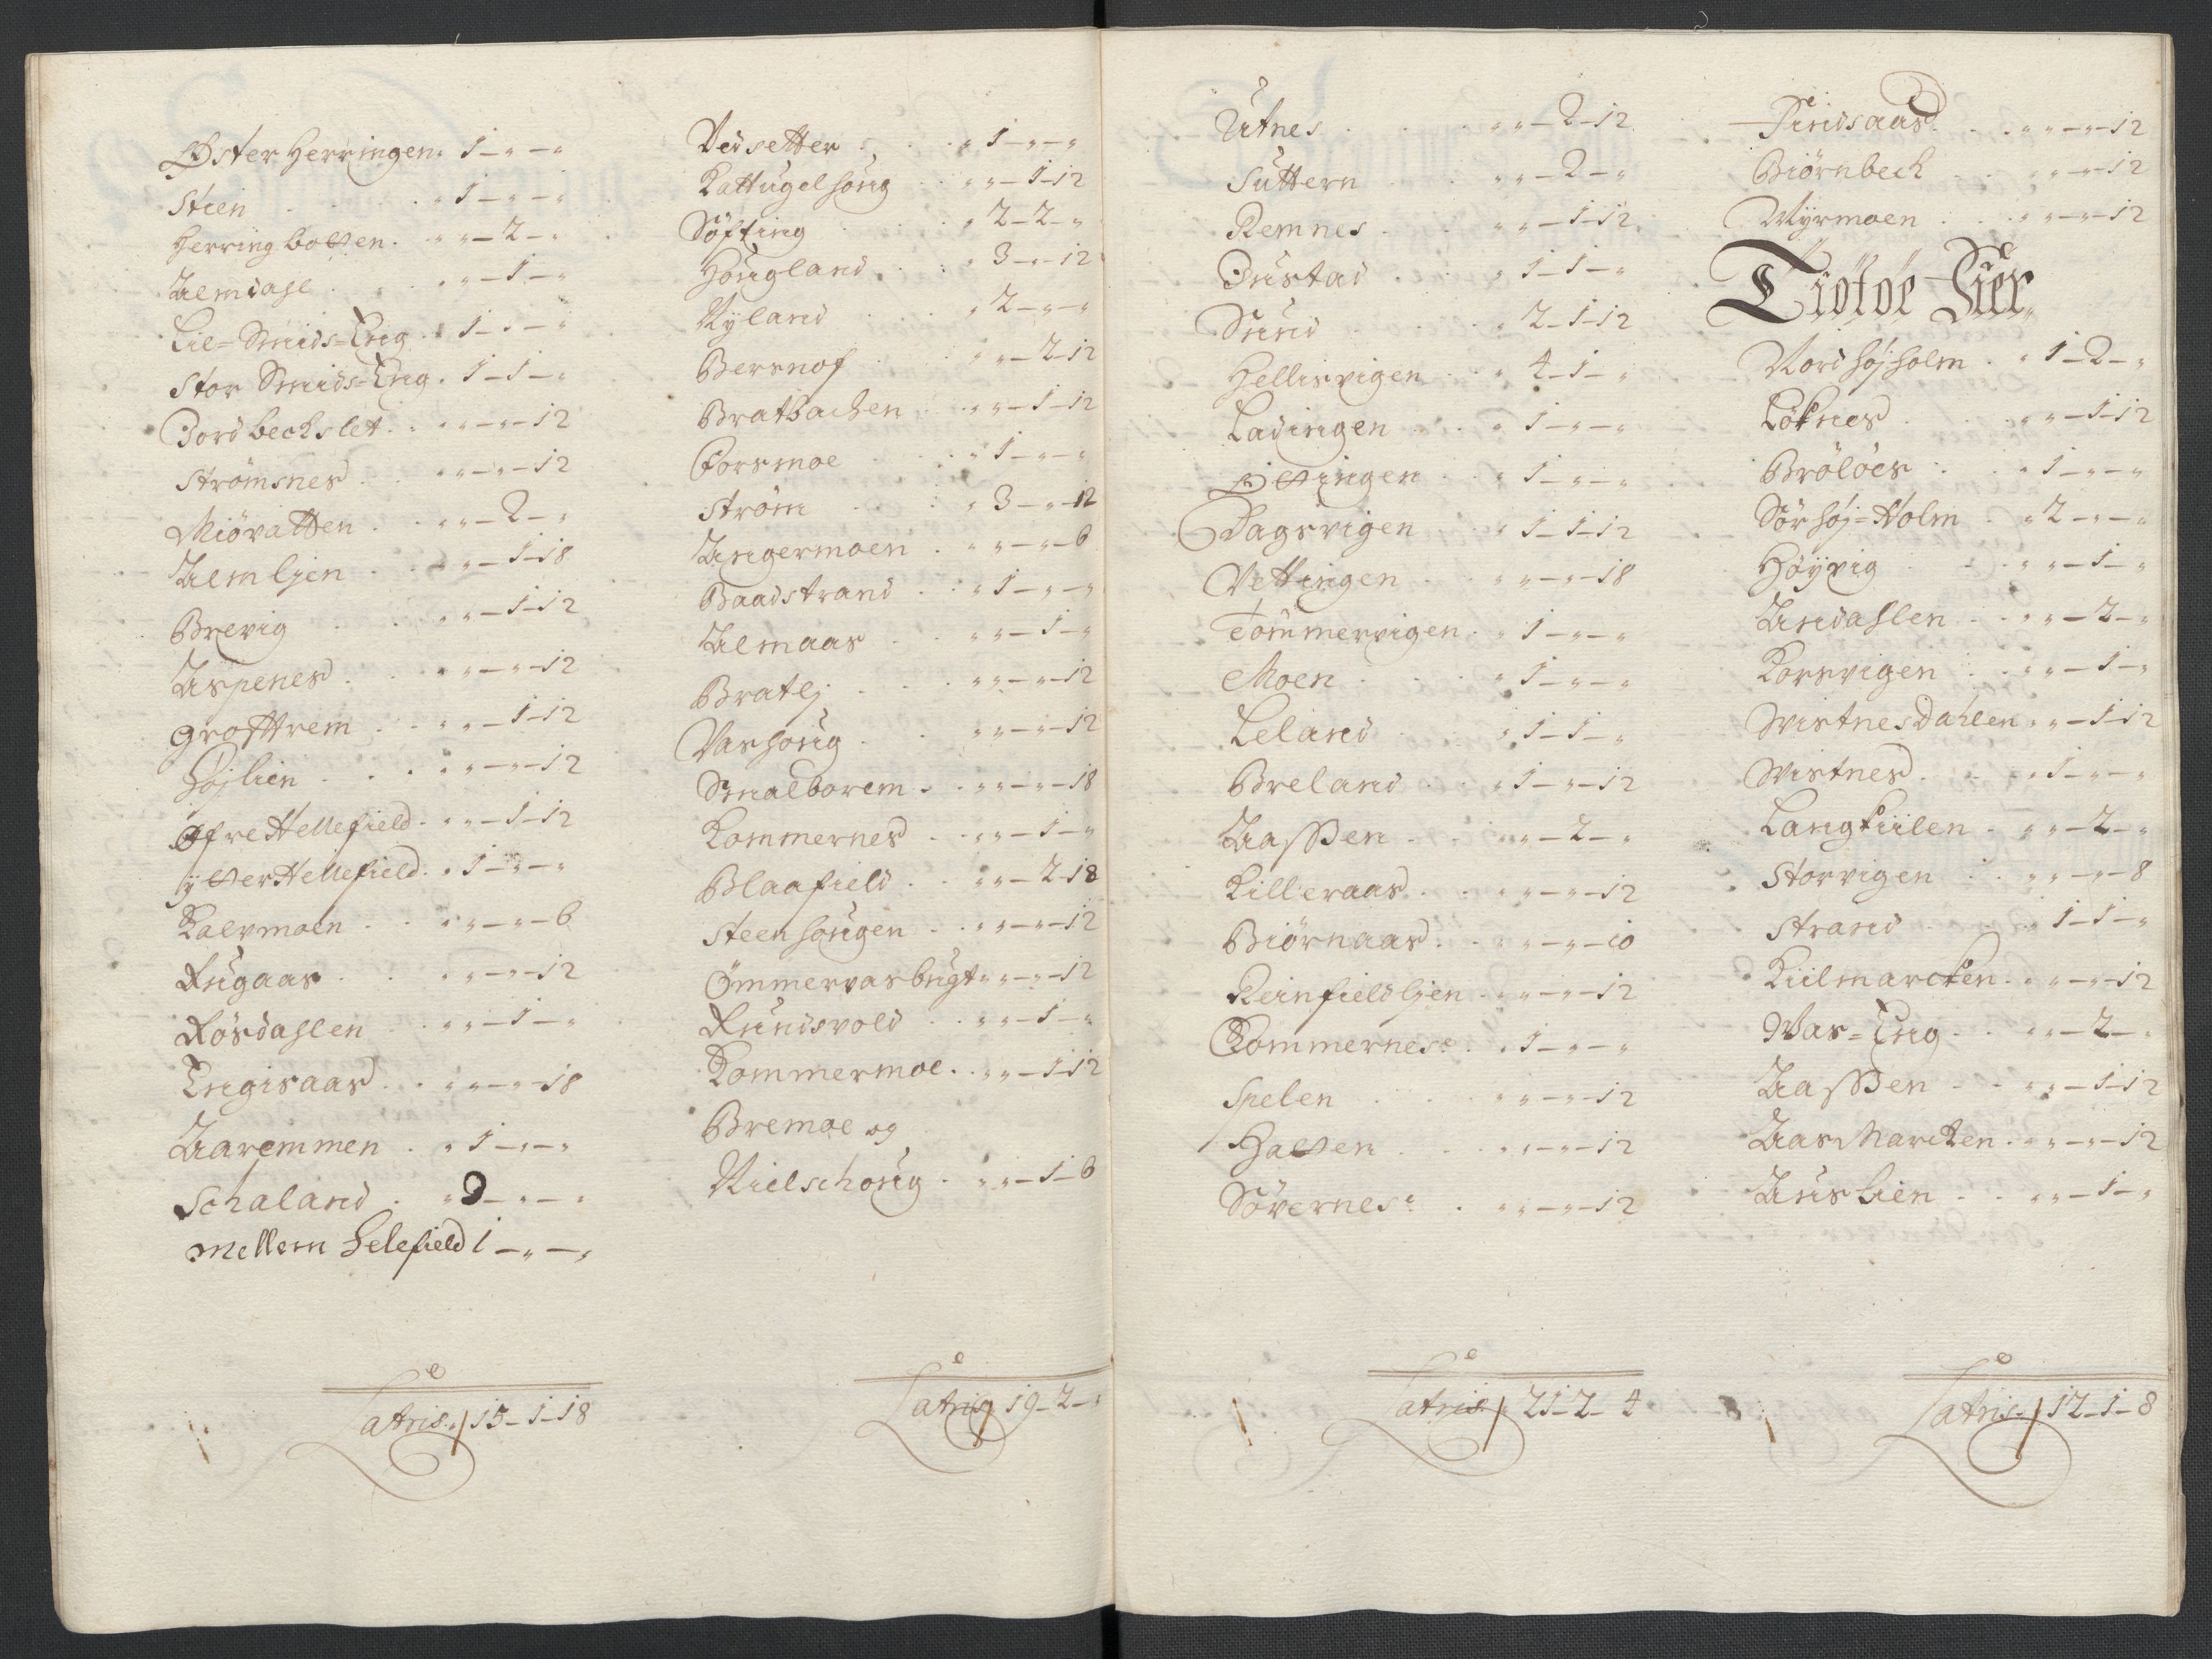 Øster Herringen. 1 – „ – „
Stien . . . . „ 1 – „ – „
Herring botten . „ „ – 2 – „
Almdahl . . . „ „ – 1 – „
Lil=Smids=Eng . „ 1 – „ – „
Stor Smids=Eng . 1 – 1 – „
Jordbechslet . „ „ – „ – 12
Strømsnes . „ „ – „ – 12
Miøvatten . „ „ – 2 – „
Almlien . „ „ – 1 – 18
Brevig . „ „ – 1 – 12
Aspenes . „ „ – „ – 12
Grofttrem . „ „ – 1 – 12
Højlien . . „ „ – „ – 12
Øfre Hellefield . „ „ – 1 – 12
ÿtter Hellefield . „ 1 – „ – „
Kalvmoen . „ „ – „ – 6
Rugaas . „ „ – „ – 12
Røsdahlen . „ „ – 1 – „
Engisaas . „ „ – „ – 18
Aaremmen . „ 1 – „ – „
Schaland . „ 2 – „ – „
Mellem Helefield 1 – „ – „
Latris . 15 – 1 – 18
Vedsetter . „ 1 – „ – „
Kattugelhoug . „ „ – 1 – 12
Søfting . „ 2 – 2 – „
Hougland . „ 3 – „ – 12
Nÿland . „ 2 – „ – „
Bersnof . „ „ – 2 – 12
Bratbachen . „ „ – 1 – 12
Forsmoe . „ 1 – „ – „
Strøm . „ 3 – „ – 12
Ungermoen . „ „ – „ – 6
Baadstrand . „ 1 – „ – „
Almaas . „ „ – 1 – „
Bratlj . „ „ – „ – 12
Vashoug . „ „ – „ – 12
Smalborem . „ „ – „ – 18
Kommernes . „ „ – 1 – „
Blaafield . „ „ – 2 – 18
Steenhougen . „ „ – „ – 12
Ømmervasbugt „ „ – „ – 12
Rundsvold . „ „ – 1 – „
Kommermoe . „ „ – 1 – 12
Bremoe og
Nielschoug . „ „ – 1 – 6
Latris 19 – 2 – „
Utnes . „ „ – 2 – 12
Suttern . „ „ – 2 – „
Remnes . „ „ – 1 – 12
Bustad . „ 1 – 1 – „
Sund . „ 2 – 1 – 12
Hellisvigen . „ 4 – 1 – „
Ladingen . „ 1 – „ – „
Ottingen . „ 1 – „ – „
Dagsvigen „ 1 – 1 – 12
Vettingen . „ „ – „ – 18
Tommervigen . „ 1 – „ – „
Moen . „ 1 – „ – „
Leland . „ 1 – 1 – „
Breland . „ 1 – „ – 12
Aassen . „ „ – 2 – „
Killeraas . „ „ – „ – 12
Biørnaas . „ „ – „ – 10
Reinfieldlien . „ „ – „ – 12
Kommernes . „ 1 – „ – „
Spelen . „ „ – „ – 12
Hatten . „ „ – „ – 12
Søvernes . „ „ – „ – 12
Latris 21 – 2 – 4
Findsaas . „ „ – „ – 12
Biørnbech . „ „ – „ – 12
Mÿrmoen . „ „ – „ – 12
Tiøtøe Fier.
Nordhøjholm . „ 1 – 2 – „
Løknes . „ „ – 1 – 12
Brøløes . „ 1 – „ – „
Sørhøj=Holm . „ 2 – „ – „
Høÿvig . „ „ – 1 – „
Andahlen . „ „ – 2 – „
Korsvigen . „ „ – 1 – „
Wistnesdahlen „ „ – 1 – 12
Wistnes . „ 1 – „ – „
Langkiilen . „ „ – 2 – „
Storvigen . „ „ – „ – 8
Strand . „ 1 – 1 – „
Kiilmarcken . „ „ – „ – 12
Vas=Eng . „ „ – 2 – „
Aassen . „ „ – 1 – 12
Aasmarcken . „ „ – „ – 12
Auslien . „ „ – 1 – „
Latris . 12 – 1 – 8